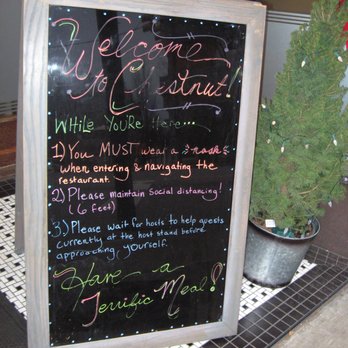 Welcome
to Chestnut!
While You're Here...
1) You MUST wear a mask
when entering & navigating the
restaurant.
2) Please maintain social distancing!
(6 feet)
3.) Please wait for hosts to help guests
currently at the host stand before
approaching yourself.
Have a
Terrific Meal!